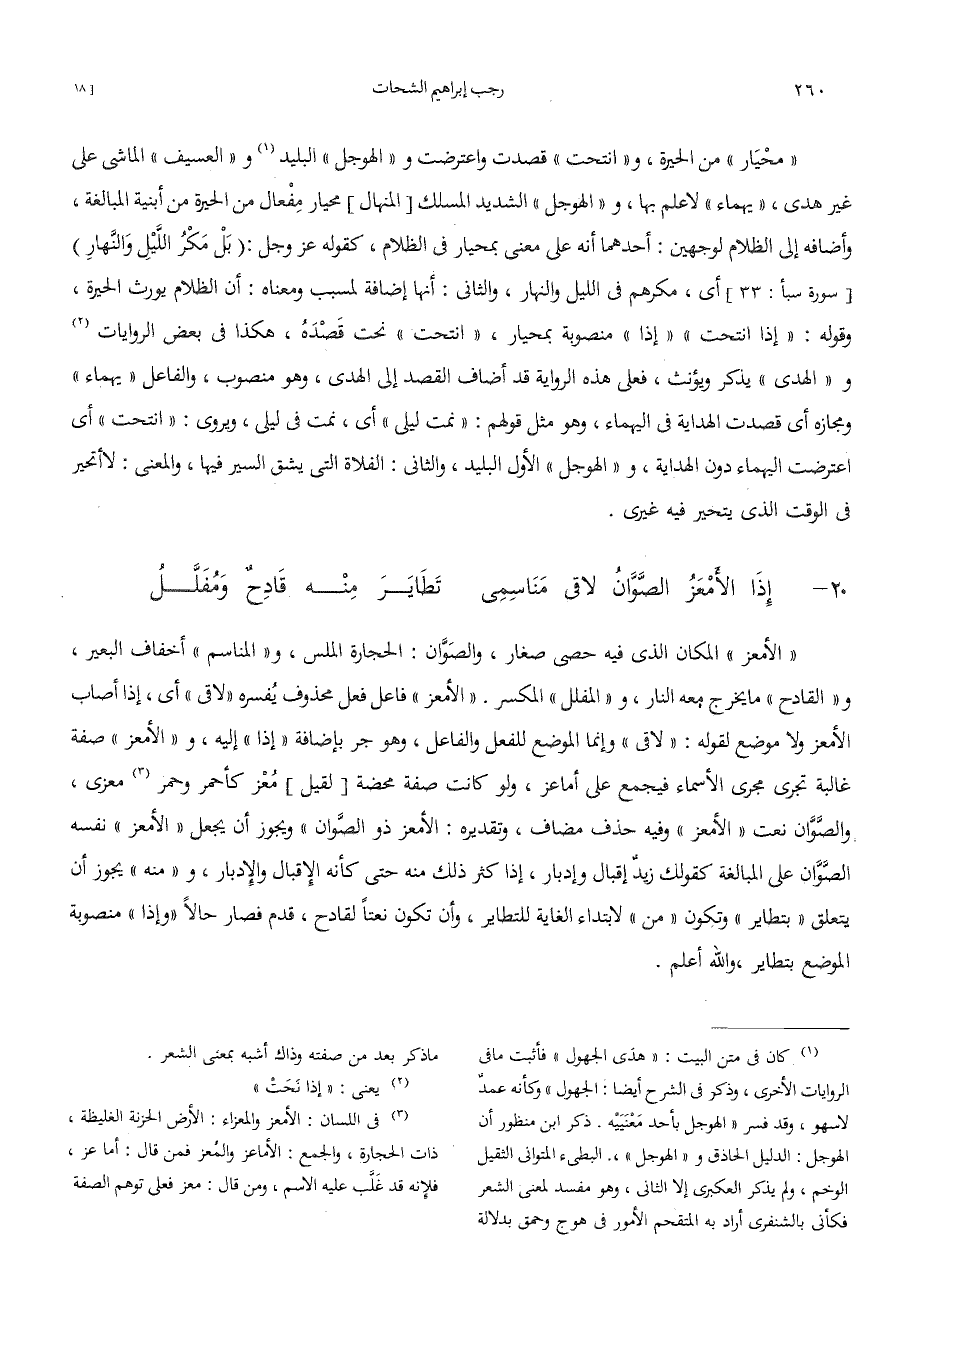 ٢٦٠ رجب إبراهيم الشحات [ ١٨
« محْيَار » من الحيرة ، و« انتحت » قصدت واعترضت و « الهوجل » البليد (١) و « العسيف » الماشى على
غير هدى ، « يهماء » لاعلم بها ، و « الهوجل » الشديد المسلك [ المنهال ] محيار مِفْعال من الحيرة من أبنية المبالغة ،
وأضافه إلى الظلام لوجهين : أحدهما أنه على معنى بمحيار فى الظلام ، كقوله عز وجل :( بَلْ مَكْرُ اللَّيْلِ وَالنَّهارِ )
[ سورة سبأ : ٣٣ ] أى ، مكرهم فى الليل والنهار ، والثانى : أنها إضافة لمسبب ومعناه : أن الظلام يورث الحيرة ،
وقوله : « إذا انتحت » « إذا » منصوبة بمحيار ، « انتحت » نحت قَصْدَهُ ، هكذا فى بعض الروايات (٢)
و « الهدى » يذكر ويؤنث ، فعلى هذه الرواية قد أضاف القصد إلى الهدى ، وهو منصوب ، والفاعل « يهماء »
ومجازه أى قصدت الهداية فى اليهماء ، وهو مثل قولهم : « نمت ليلى » أى ، نمت فى ليلى ، ويروى : « انتحت » أى
اعترضت اليهماء دون الهداية ، و « الهوجل » الأول البليد ، والثانى : الفلاة التى يشق السير فيها ، والمعنى : لاأتحير
فى الوقت الذى يتحير فيه غيرى .
٢٠– إِذَا الأَمْعَزُ الصَّوَّانُ لاقى مَنَاسِمِى تَطَايَـــرَ مِنْـــه قَادِحٌ وَمُفَلَّـــلُ
« الأمعز » المكان الذى فيه حصى صغار ، والصَوَّان : الحجارة الملس ، و« المناسم » أخفاف البعير ،
و« القادح » مايخرج معه النار ، و « المفلل » المكسر . « الأمعز » فاعل فعل محذوف يُفسره «لاقى » أى ، إذا أصاب
الأمعز ولا موضع لقوله : « لاقى » وإنما الموضع للفعل والفاعل ، وهو جر بإضافة « إذا » إليه ، و « الأمعز » صفة
غالبة تجرى مجرى الأسماء فيجمع على أماعز ، ولو كانت صفة محضة [ لقيل ] مُعْز كأحمر وحمر (٣) معزى ،
والصَّوَّان نعت « الأمعز » وفيه حذف مضاف ، وتقديره : الأمعز ذو الصَّوان » ويجوز أن يجعل « الأمعز » نفسه
الصَّوَّان على المبالغة كقولك زيدٌ إقبال وإدبار ، إذا كثر ذلك منه حتى كأنه الإقبال والإدبار ، و « منه » يجوز أن
يتعلق « بتطاير » وتكون « من » لابتداء الغاية للتطاير ، وأن تكون نعتاً لقادح ، قدم فصار حالاً «وإذا » منصوبة
الموضع بتطاير ،والله أعلم .
(١) كان فى متن البيت : « هدَى الجهول » فأثبت مافى
الروايات الأخرى ، وذكر فى الشرح أيضا : الجهول » وكأنه عمدٌ
لاسهو ، وقد فسر « الهوجل بأحد مَعْنَيَيْه . ذكر ابن منظور أن
الهوجل : الدليل الحاذق و « الهوجل » ،. البطىء المتوانى الثقيل
الوخم ، ولم يذكر العكبرى إلا الثانى ، وهو مفسد لمعنى الشعر
فكأنى بالشنفرى أراد به المتقحم الأمور فى هوج وحمق بدلالة
ماذكر بعد من صفته وذاك أشبه بمعنى الشعر .
(٢) يعنى : « إذا نَحَتْ »
(٣) فى اللسان : الأمعز والمعزاء : الأرض الحزنة الغليظة ،
ذات الحجارة ، والجمع : الأماعز والمُعز فمن قال : أما عز ،
فلإنه قد غَلَّب عليه الاسم ، ومن قال : معز فعلى توهم الصفة